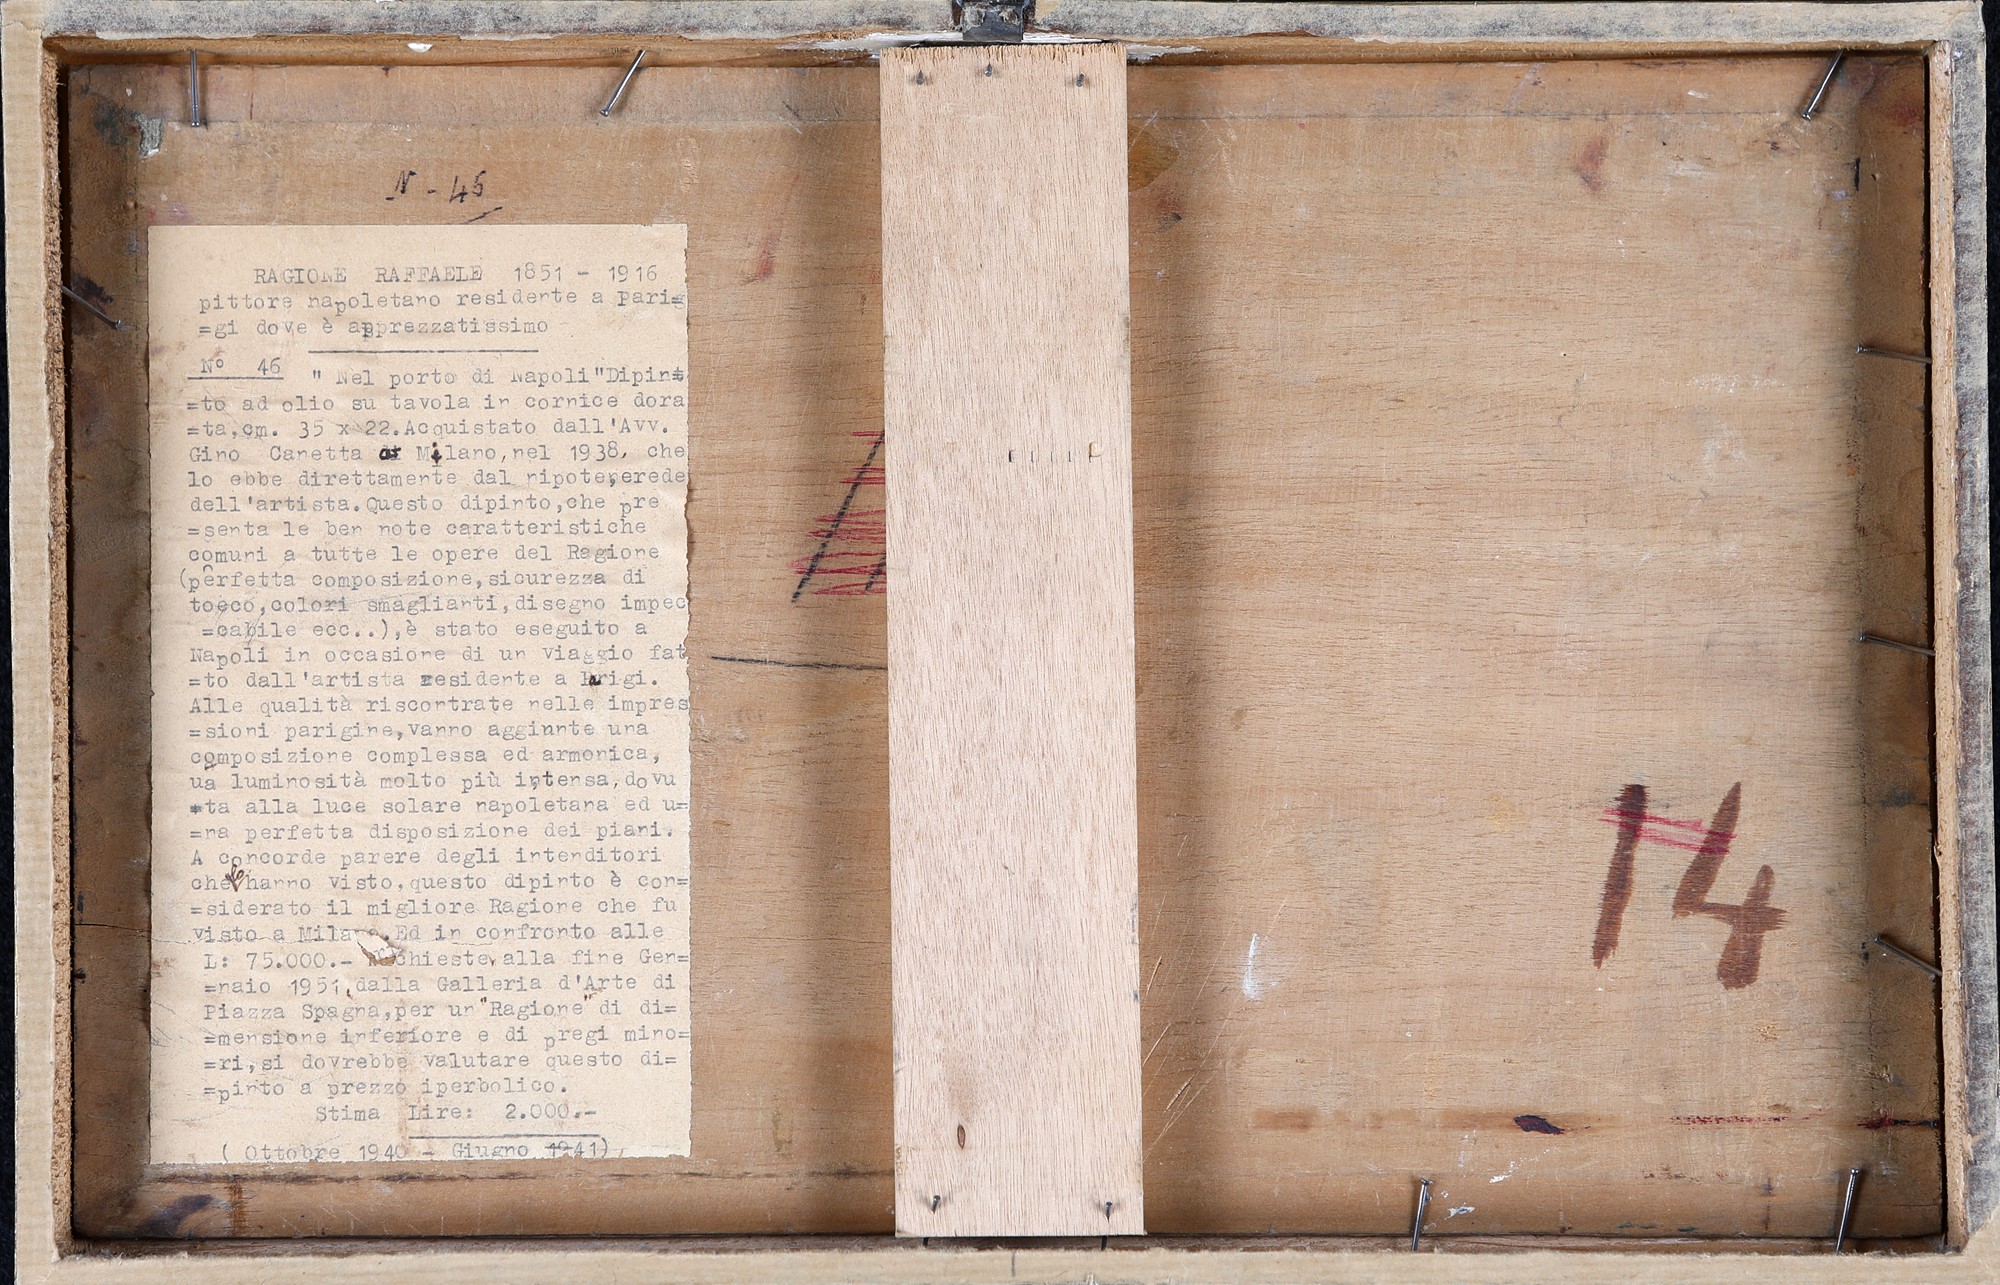 N - 45
RAGIONE RAFFAELE 1851 - 1916
pittore napoletano residente a Pari=
=gi dove è apprezzatissimo
N° 46
" Nel porto di Napoli"Dipin=
=to ad olio su tavola in cornice dora
=ta,cm. 35 x 22.Acquistato dall'Avv.
Gino Canetta di Milano,nel 1938, che
lo ebbe direttamente dal nipote,erede
dell'artista.Questo dipinto,che pre
=senta le ben note caratteristiche
comuni a tutte le opere del Ragione
(perfetta composizione,sicurezza di
tocco,colori smaglianti,disegno impec
=cabile ecc..),è stato eseguito a
Napoli in occasione di un viaggio fat
=to dall'artista residente a Parigi.
Alle qualità riscontrate nelle impres
=sioni parigine,vanno aggiunte una
composizione complessa ed armonica,
ua luminosità molto più intensa,dovu
=ta alla luce solare napoletana ed u=
=na perfetta disposizione dei piani.
A concorde parere degli intenditori
che lo hanno visto,questo dipinto è con=
=siderato il migliore Ragione che fu
visto a Milano.Ed in confronto alle
L: 75.000.- richieste,alla fine Gen=
=naio 1951,dalla Galleria d'Arte di
Piazza Spagna,per un "Ragione" di di=
=mensione inferiore e di pregi mino=
=ri,si dovrebbe valutare questo di=
=pinto a prezzo iperbolico.
Stima Lire: 2.000.-
( Ottobre 1940 - Giugno 1941)
14